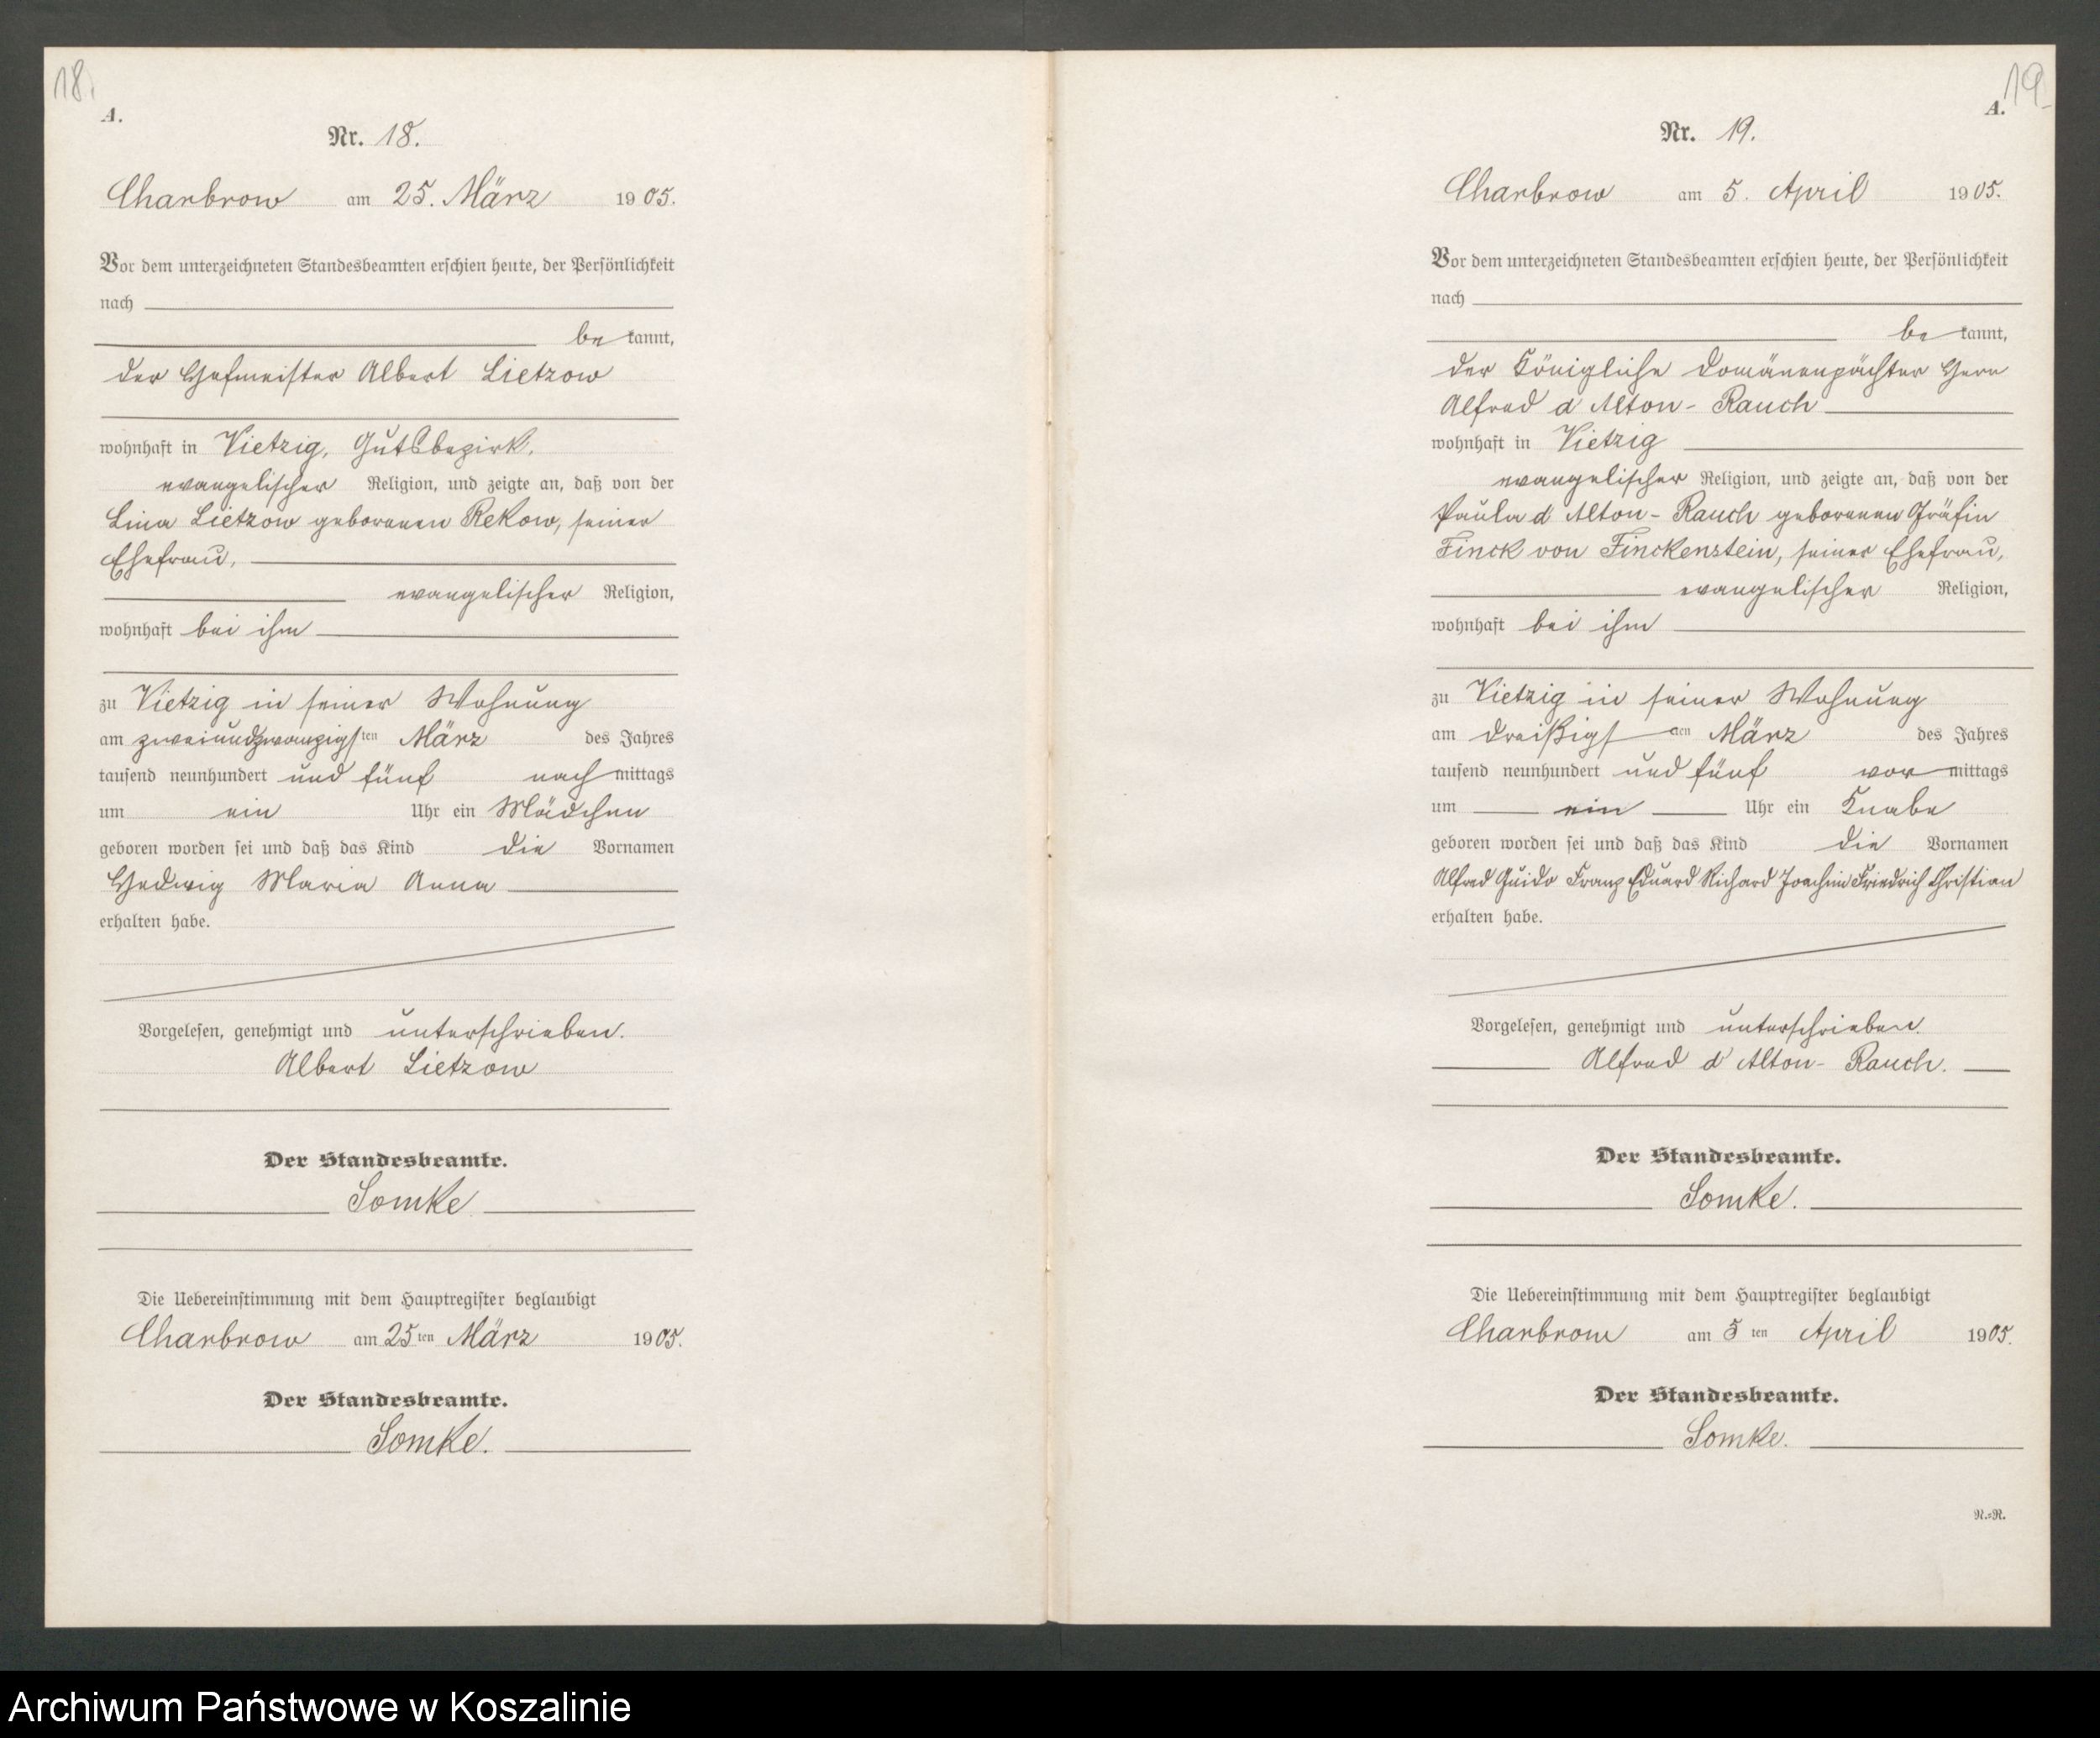 18.
A.
Nr. 18.
Charbrow am 25. März 1905.
Vor dem unterzeichneten Standesbeamten erschien heute, der Persönlichkeit
nach
be kannt,
der Hofmeister Albert Lietzow
wohnhaft in Vietzig, Gutsbezirk,
evangelischer Religion, und zeigte an, daß von der
Lina Lietzow geborenen Rekow, seiner
Ehefrau,
evangelischer Religion,
wohnhaft bei ihm
zu Vietzig in seiner Wohnung
am zweiundzwanzigsten März des Jahres
tausend neunhundert und fünf nachmittags
um ein Uhr ein Mädchen
geboren worden sei und daß das Kind die Vornamen
Hedwig Maria Anna
erhalten habe.
Vorgelesen, genehmigt und unterschrieben.
Albert Lietzow
Der Standesbeamte.
Somke
Die Uebereinstimmung mit dem Hauptregister beglaubigt
Charbrow am 25ten März 1905.
Der Standesbeamte.
Somke.
19
A.
Nr. 19.
Charbrow am 5. April 1905.
Vor dem unterzeichneten Standesbeamten erschien heute, der Persönlichkeit
nach
be kannt,
der Königliche Domänenpächter Herr
Alfred d'Alton-Rauch
wohnhaft in Vietzig
evangelischer Religion, und zeigte an, daß von der
Paula d'Alton-Rauch geborenen Gräfin
Finck von Finckenstein, seiner Ehefrau,
evangelischer Religion,
wohnhaft bei ihm
zu Vietzig in seiner Wohnung
am dreißigsten März des Jahres
tausend neunhundert und fünf vormittags
um ein Uhr ein Knabe
geboren worden sei und daß das Kind die Vornamen
Alfred Guido Franz Eduard Richard Joachim Friedrich Christian
erhalten habe.
Vorgelesen, genehmigt und unterschrieben.
Alfred d'Alton-Rauch.
Der Standesbeamte.
Somke.
Die Uebereinstimmung mit dem Hauptregister beglaubigt
Charbrow am 5ten April 1905.
Der Standesbeamte.
Somke.
N.=R.
Archiwum Państwowe w Koszalinie